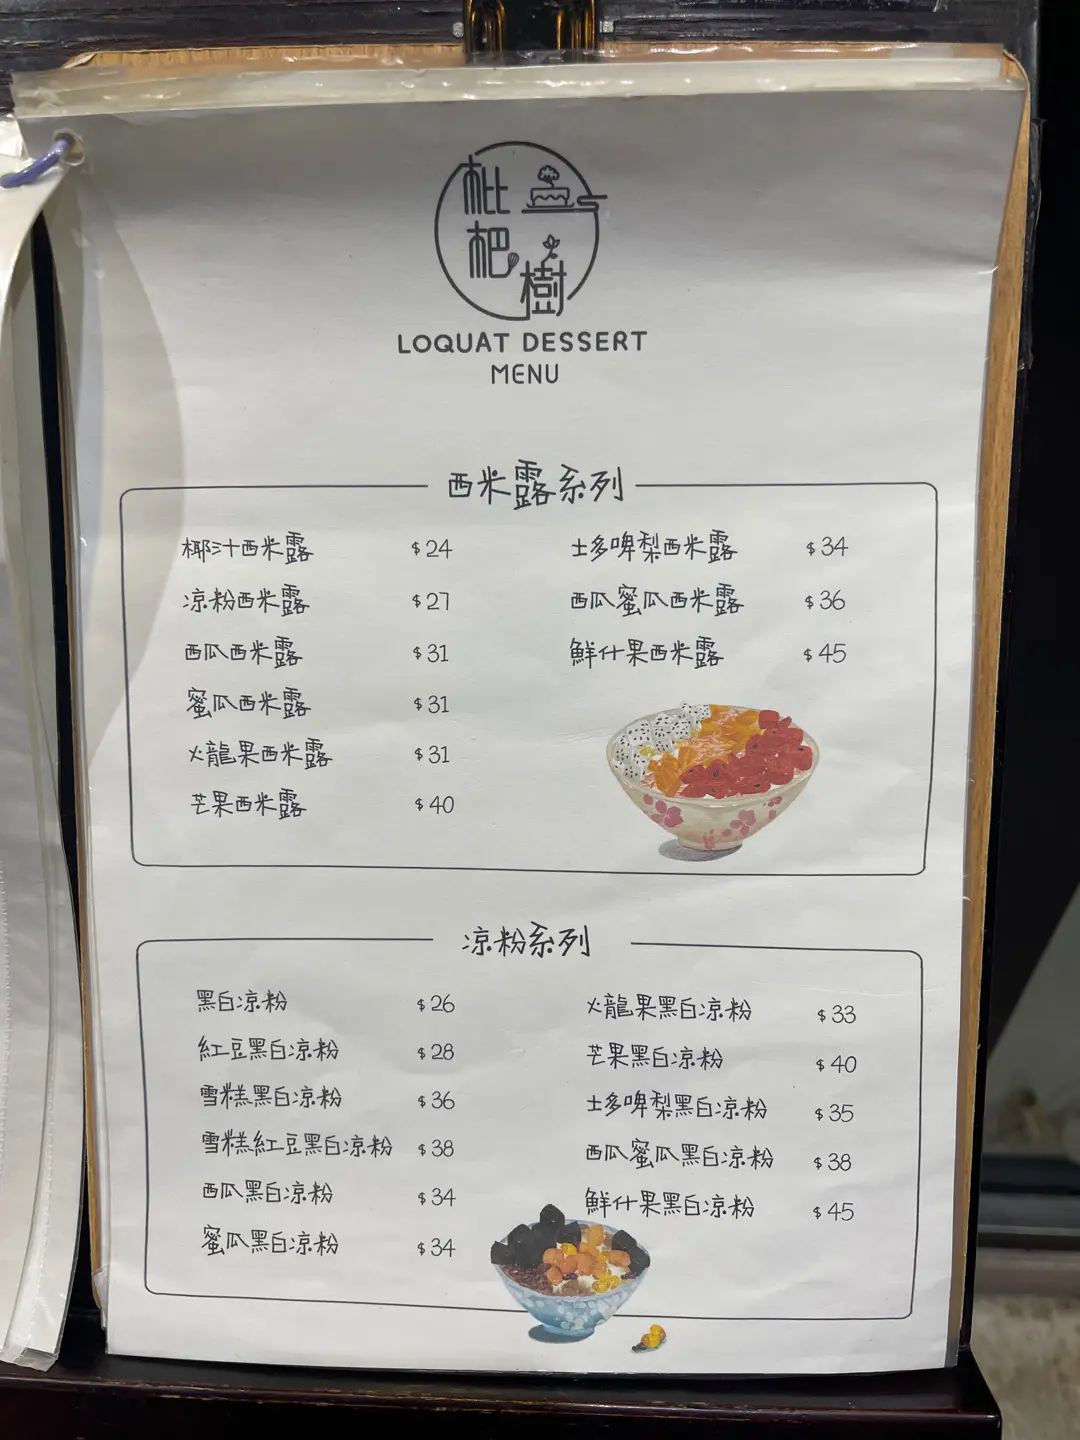 枇杷樹
LOQUAT DESSERT
MENU
西米露系列
椰汁西米露 $24
凉粉西米露 $27
西瓜西米露 $31
蜜瓜西米露 $31
火龍果西米露 $31
芒果西米露 $40
士多啤梨西米露 $34
西瓜蜜瓜西米露 $36
鮮什果西米露 $45
凉粉系列
黑白凉粉 $26
紅豆黑白凉粉 $28
雪糕黑白凉粉 $36
雪糕紅豆黑白凉粉 $38
西瓜黑白凉粉 $34
蜜瓜黑白凉粉 $34
火龍果黑白凉粉 $33
芒果黑白凉粉 $40
士多啤梨黑白凉粉 $35
西瓜蜜瓜黑白凉粉 $38
鮮什果黑白凉粉 $45